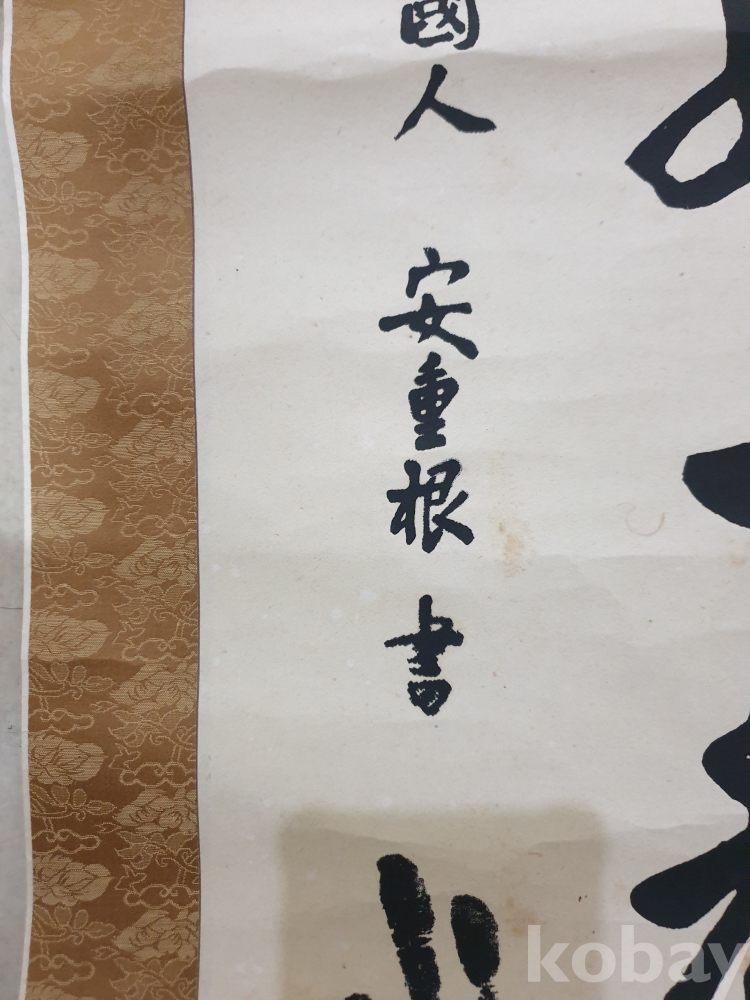 國人 安重根 書
kobay